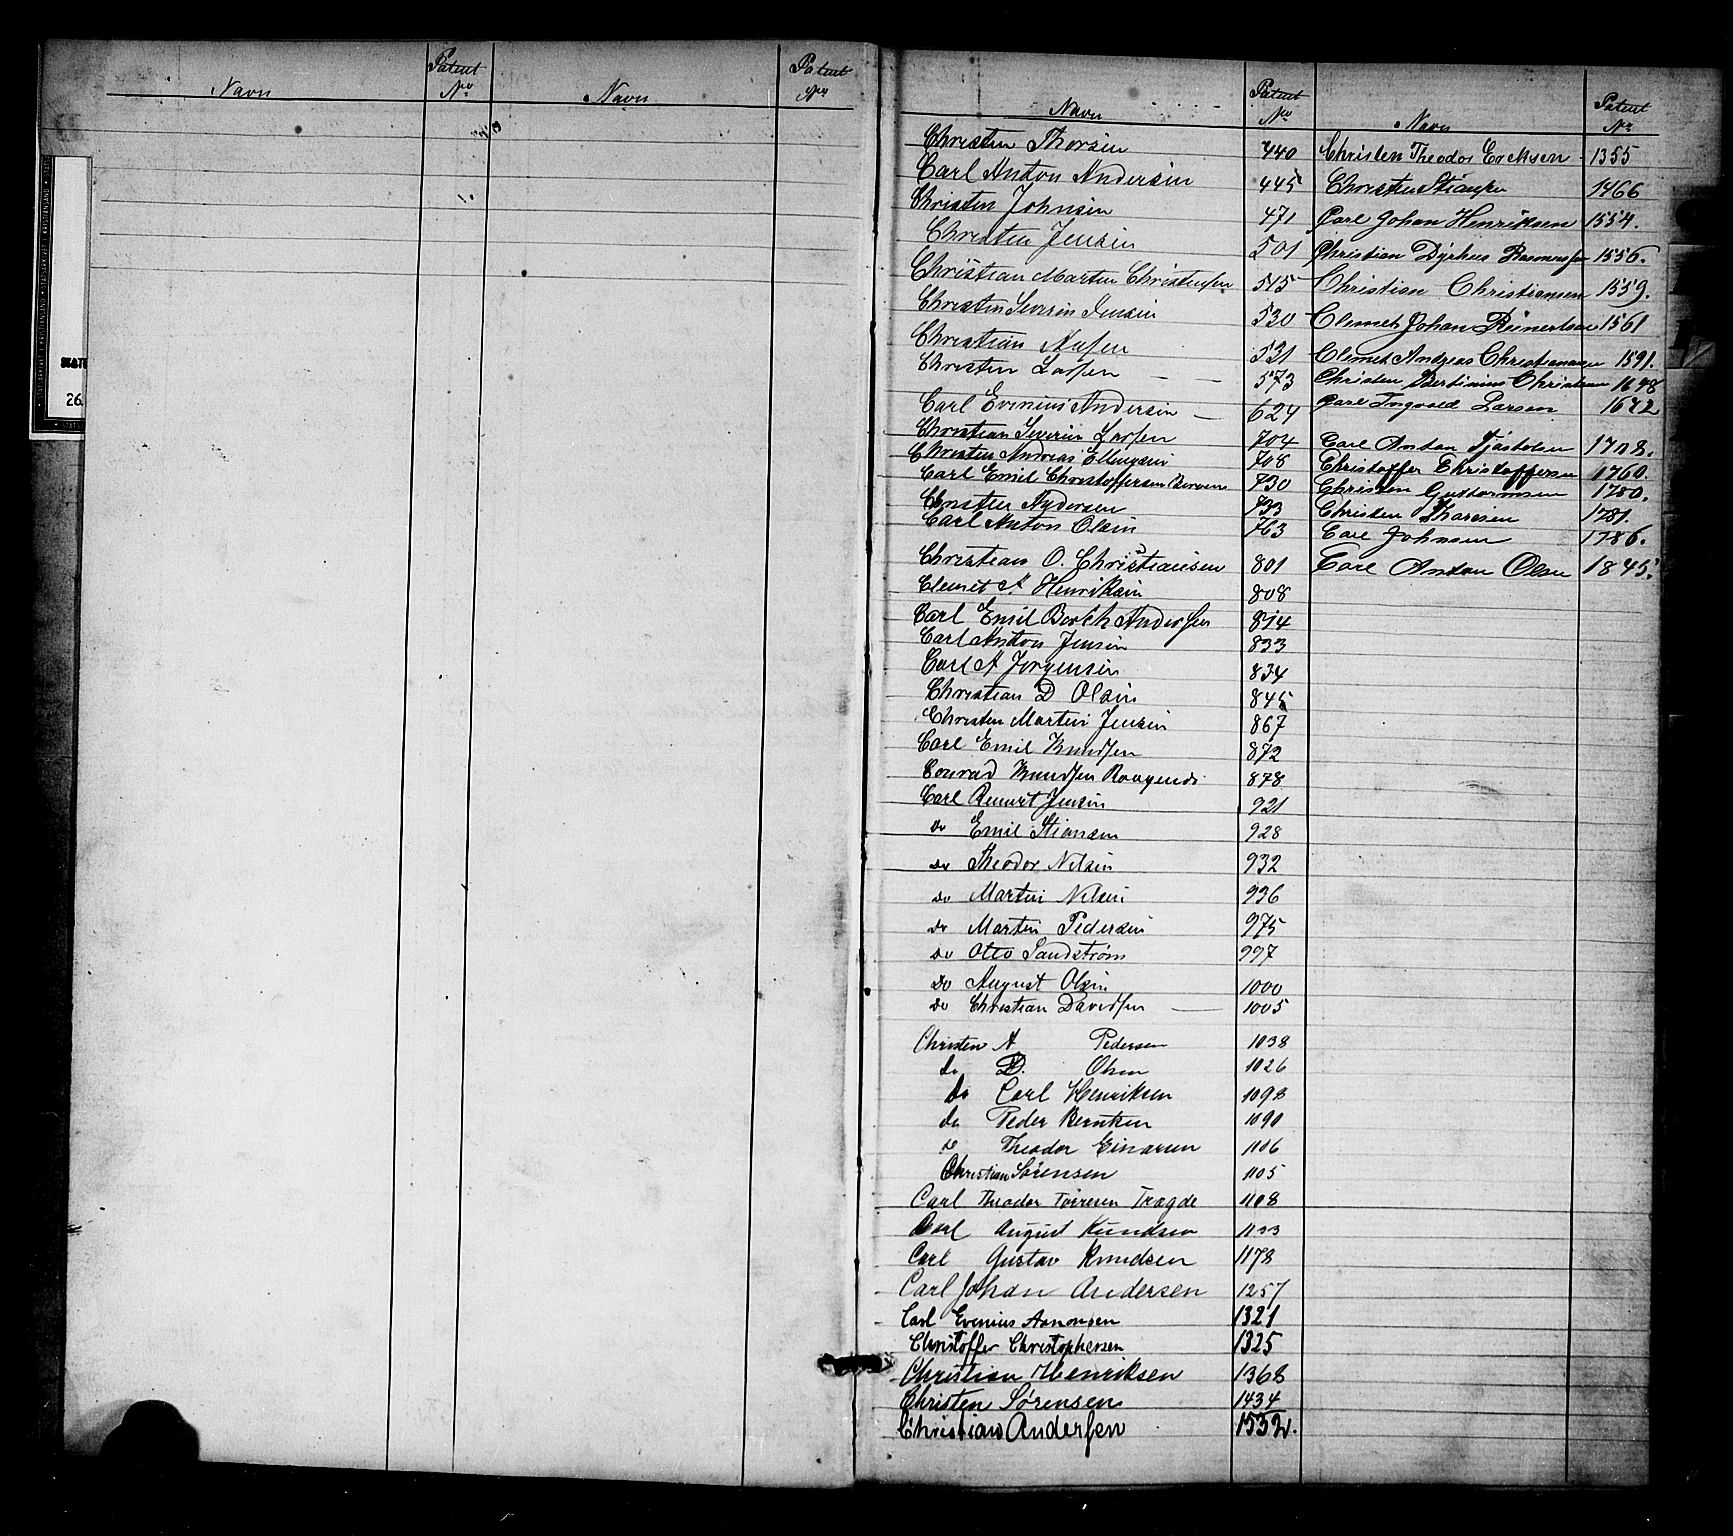 Navn Patent No Navn Patent No
Navn Patent No Navn Patent No
Christen Thorsen 440
Carl Anton Andersen 445
Christen Johnsen 471
Christen Jensen 501
Christian Marten Christensen 515
Christen Severin Jensen 530
Christian 521
Christen Larsen 573
Carl Evenius Andersen 624
Christian Severin Larsen 704
Christen Andreas Ellingsen 708
Carl Emil Christoffersen 730
Christen 733
Carl Anton Olsen 763
Christian O. Christiansen 801
Clemet A Henriksen 808
Carl Emil Berth Andersen 814
Carl Anton Jensen 833
Carl A Jørgensen 834
Christian D Olsen 845
Christen Martin Jensen 867
Carl Emil Knudsen 872
Conrad Knudsen 878
Carl Jensen 921
Do Emil Stiansen 928
Do Theodor Nilsen 932
Do Martin Nilsen 936
Do Martin Pedersen 975
Do Otto Sandstrøm 997
Do August Olsen 1000
Do Christian Davidsen 1005
Christen A Pedersen 1038
do D. Olsen 1026
do Carl Henriksen 1098
do Peder Berntsen 1090
do Theodor Einarsen 1106
Christian Sørensen 1105
Carl Theodor Torresen Tregde 1108
Carl August Kundsen 1133
Carl Gustav Knudsen 1178
Carl Johan Andersen 1257
Carl Evenius Aanonsen 1321
Christoffer Christophersen 1325
Christian Henriksen 1368
Christen Sørensen 1434
Christian Andersen 1532.
Christen Theodor Ericksen 1355
Christen Stiansen 1466
Carl Johan Henriksen 1554.
Christian Dyrhus Rasmussen 1556.
Christian Christiansen 1559.
Clemet Johan Reinertsen 1561
Clemet Andreas Christiansen 1591.
Christen Bertinius Christensen 1648
Carl Ingvald Larsen 1642
Carl Anton Tjøstolsen 1708.
Christoffer Christoffersen 1760.
Christen Guttormsen 1780.
Christen Thorsen 1781.
Carl Johnsen 1786.
Carl Anton Olsen 1845.
26.